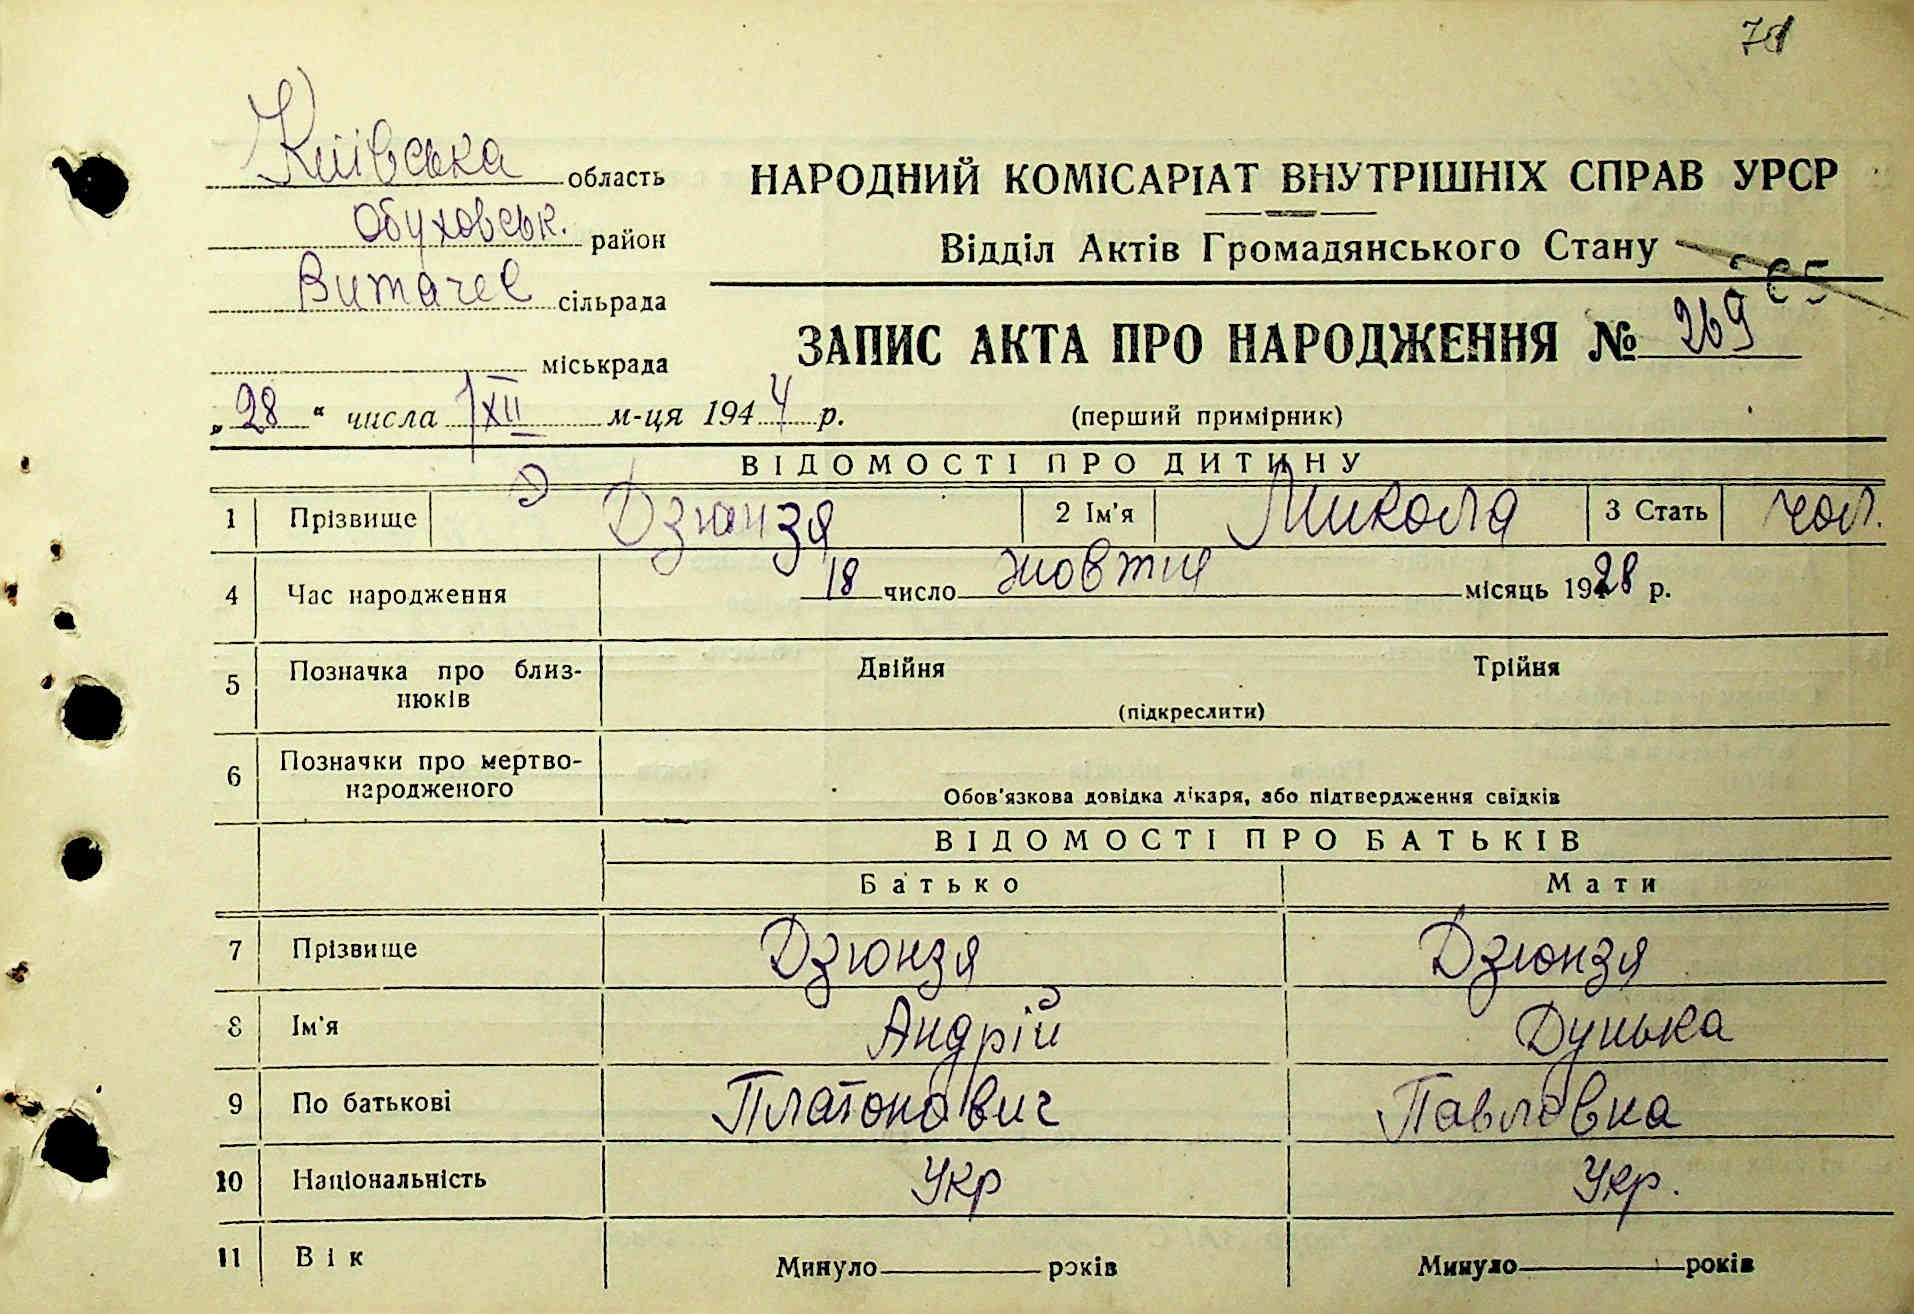 71
Київська область
Обуховськ. район
Витачев сільрада
міськрада
НАРОДНИЙ КОМІСАРІАТ ВНУТРІШНІХ СПРАВ УРСР
Відділ Актів Громадянського Стану
ЗАПИС АКТА ПРО НАРОДЖЕННЯ № 269
„28“ числа XII м-ця 1944 р. (перший примірник)
ВІДОМОСТІ ПРО ДИТИНУ
1 Прізвище Дзюнзя 2 Ім'я Микола 3 Стать чол.
4 Час народження 18 число жовтня місяць 1928 р.
5 Позначка про близнюків Двійня Трійня
(підкреслити)
6 Позначки про мертвонародженого
Обов'язкова довідка лікаря, або підтвердження свідків
ВІДОМОСТІ ПРО БАТЬКІВ
Батько Мати
7 Прізвище Дзюнзя Дзюнзя
8 Ім'я Андрій Дунька
9 По батькові Платонович Павловна
10 Національність Укр Укр.
11 Вік Минуло років Минуло років